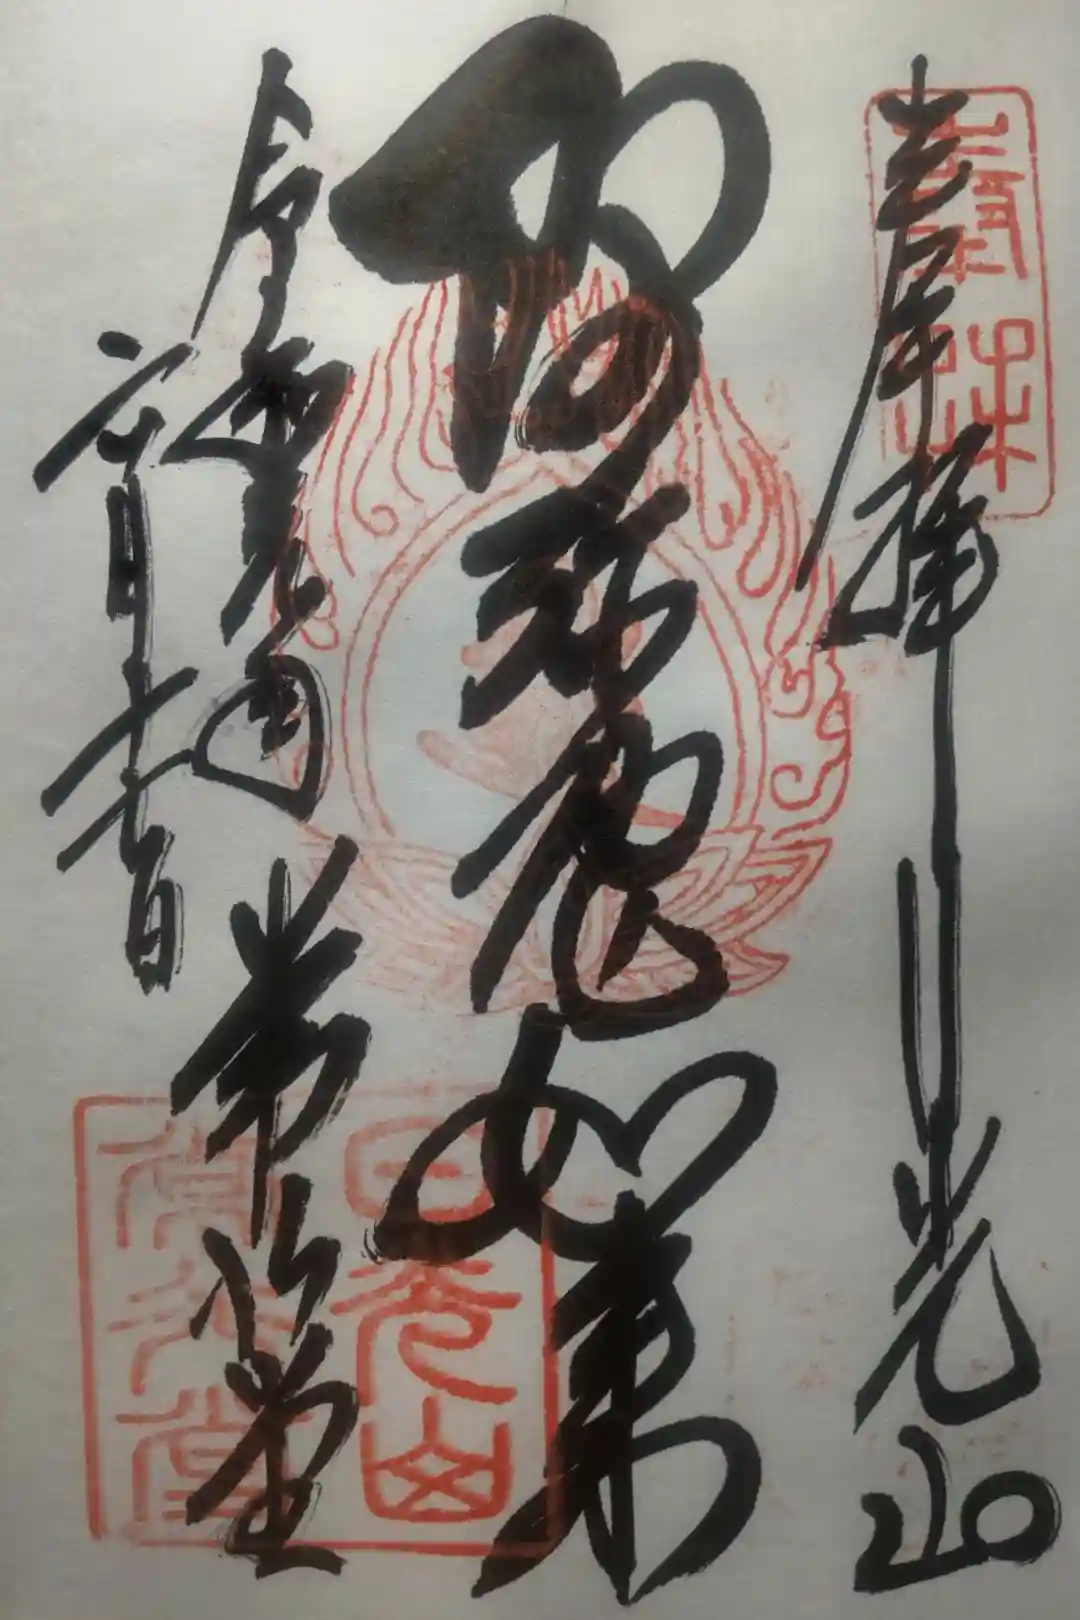 奉拝
日光山
阿弥陀如来
令和
月十七日
常行堂
奉拝
日光山
常行堂